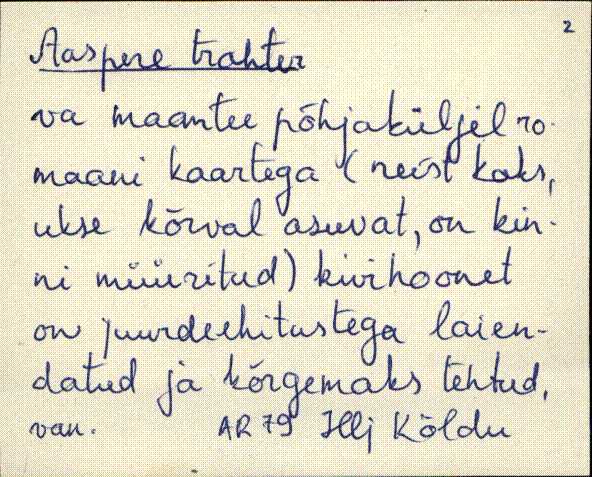 2
Aaspere trahter
va maantee põhjaküljel ro-
maani kaartega (neist kaks,
ukse kõrval asuvat, on kin-
ni müüritud) kivihoonet
on juurdeehitustega laien-
datud ja kõrgemaks tehtud,
van. AR 79 Illj Kõldu